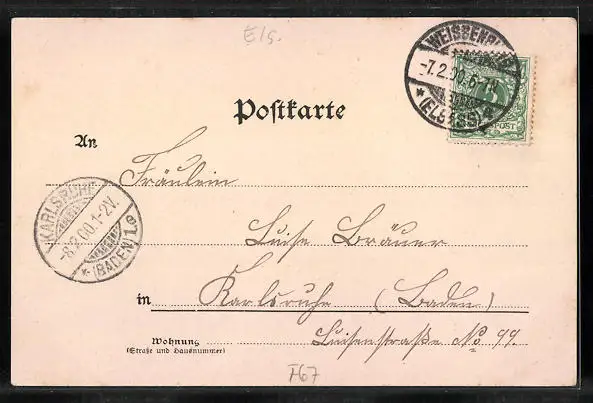 Els.
WEISSENBURG
-7.2.00.6-7N
*(ELSASS)*
POST
Postkarte
An
Fräulein
KARLSRUHE
-8.2.00.1-2V.
*(BADEN)1.e
Luise Bräuer
in Karlsruhe (Baden)
Wohnung
(Straße und Hausnummer)
Luisenstraße No 99.
F67